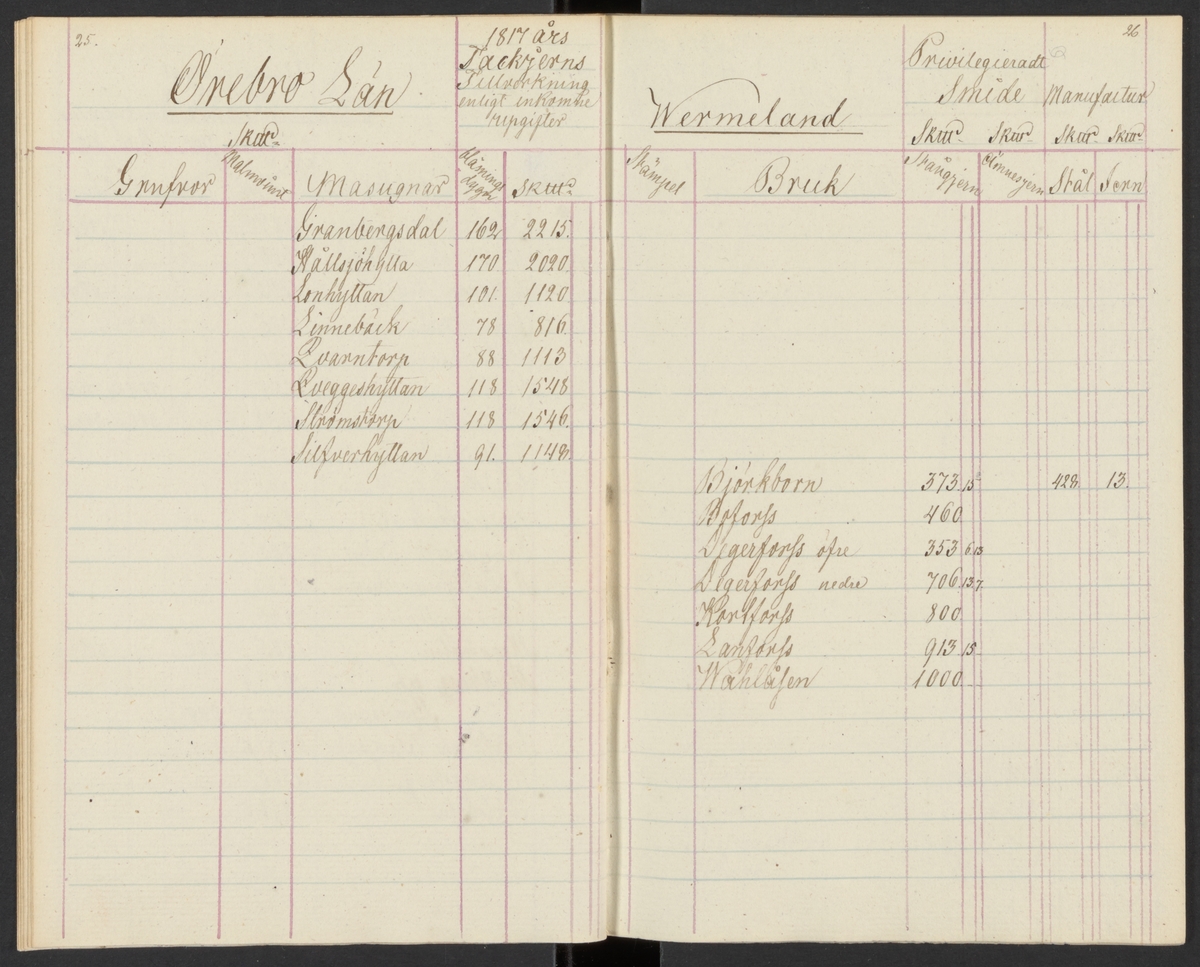 25.
Örebro Län
1817 års
Tackjerns
Tillverkning
enligt inkomne
upgifter
Skttd
Grufvor
Malmränt
Masugnar
Blåsnings
dygn
Skttd
Granbergsdal 162 2215.
Hållsjöhytta 170 2020.
Lonhyttan 101. 1120
Linnebäck 78 816.
Qvarntorp 88 1113
Qveggeshyttan 118 1548
Strömstorp 118 1546.
Silfverhyttan 91. 1148.
26
Wermeland
Privilegieradt
Smide Manufactur
Skttd Skttd Skttd Skttd
Stämpel
Bruk
Stångjern
Ämnesjern
Stål
Jern
Björkborn 373.15 428. 13.
Boforss 460
Degerforss öfre 353 6.13
Degerforss nedre 706.13.7
Kortforss 800
Lanforss 913 15
Wåhlåsen 1000